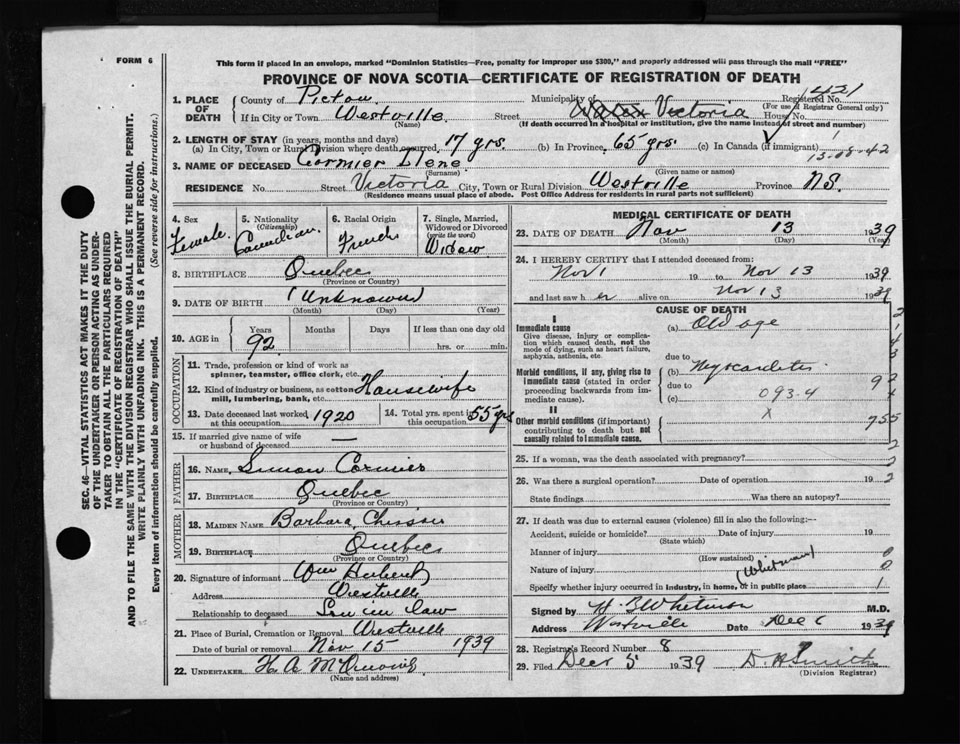 FORM 6
This form if placed in an envelope, marked "Dominion Statistics—Free, penalty for improper use $300," and properly addressed will pass through the mail "FREE"
PROVINCE OF NOVA SCOTIA—CERTIFICATE OF REGISTRATION OF DEATH
421
1. PLACE OF DEATH County of Pictou Municipality of Registered No.
(For use of Registrar General only)
If in City or Town Westville (Name) Street Victoria House No.
(If death occurred in a hospital or institution, give the name instead of street and number)
2. LENGTH OF STAY (in years, months and days)
(a) In City, Town or Rural Division where death occurred 17 yrs. (b) In Province 65 yrs. (c) In Canada (if immigrant)
15-08-42
3. NAME OF DECEASED Cormier Ilene
(Surname) (Given name or names)
RESIDENCE No. Street Victoria City, Town or Rural Division Westville Province N.S.
(Residence means usual place of abode. Post Office Address for residents in rural parts not sufficient)
4. Sex Female
5. Nationality (Citizenship) Canadian
6. Racial Origin French
7. Single, Married, Widowed or Divorced (write the word) Widow
8. BIRTHPLACE Quebec
(Province or Country)
9. DATE OF BIRTH (Unknown)
(Month) (Day) (Year)
10. AGE in Years Months Days If less than one day old
92 hrs. or min.
OCCUPATION
11. Trade, profession or kind of work as spinner, teamster, office clerk, etc.
12. Kind of industry or business, as cotton mill, lumbering, bank, etc. Housewife
13. Date deceased last worked at this occupation 1920
14. Total yrs. spent in this occupation 55 yrs
15. If married give name of wife or husband of deceased —
FATHER
16. Name Simon Cormier
17. Birthplace Quebec
(Province or Country)
MOTHER
18. Maiden Name Barbara
19. Birthplace Quebec
(Province or Country)
20. Signature of informant Wm
Address Westville
Relationship to deceased Son in law
21. Place of Burial, Cremation or Removal Westville
Date of burial or removal Nov 15 1939
22. UNDERTAKER H. A.
(Name and address)
MEDICAL CERTIFICATE OF DEATH
23. DATE OF DEATH Nov 13 1939
(Month) (Day) (Year)
24. I HEREBY CERTIFY that I attended deceased from:
Nov 1 19 to Nov 13 1939
and last saw her alive on Nov 13 1939
CAUSE OF DEATH
I
Immediate cause
Give disease, injury or complication which caused death, not the mode of dying, such as heart failure, asphyxia, asthenia, etc
(a) Old age
due to
Morbid conditions, if any, giving rise to immediate cause (stated in order proceeding backwards from immediate cause).
(b) Myocarditis
due to
(c) 093.4
II
Other morbid conditions (if important) contributing to death but not causally related to immediate cause.
X
25. If a woman, was the death associated with pregnancy?
26. Was there a surgical operation? Date of operation 19
State findings Was there an autopsy?
27. If death was due to external causes (violence) fill in also the following:—
Accident, suicide or homicide? Date of injury 19
(State which)
Manner of injury
(How sustained)
Nature of injury
(Whitman)
Specify whether injury occurred in industry, in home, or in public place
Signed by H B Whitman M.D.
Address Westville Date Dec 1939
28. Registrar's Record Number 8
29. Filed Dec 5 1939 Smith
(Division Registrar)
SEC. 46—VITAL STATISTICS ACT MAKES IT THE DUTY
OF THE UNDERTAKER OR PERSON ACTING AS UNDER-
TAKER TO OBTAIN ALL THE PARTICULARS REQUIRED
IN THE "CERTIFICATE OF REGISTRATION OF DEATH"
AND TO FILE THE SAME WITH THE DIVISION REGISTRAR WHO SHALL ISSUE THE BURIAL PERMIT.
WRITE PLAINLY WITH UNFADING INK. THIS IS A PERMANENT RECORD.
Every item of information should be carefully supplied. (See reverse side for instructions.)